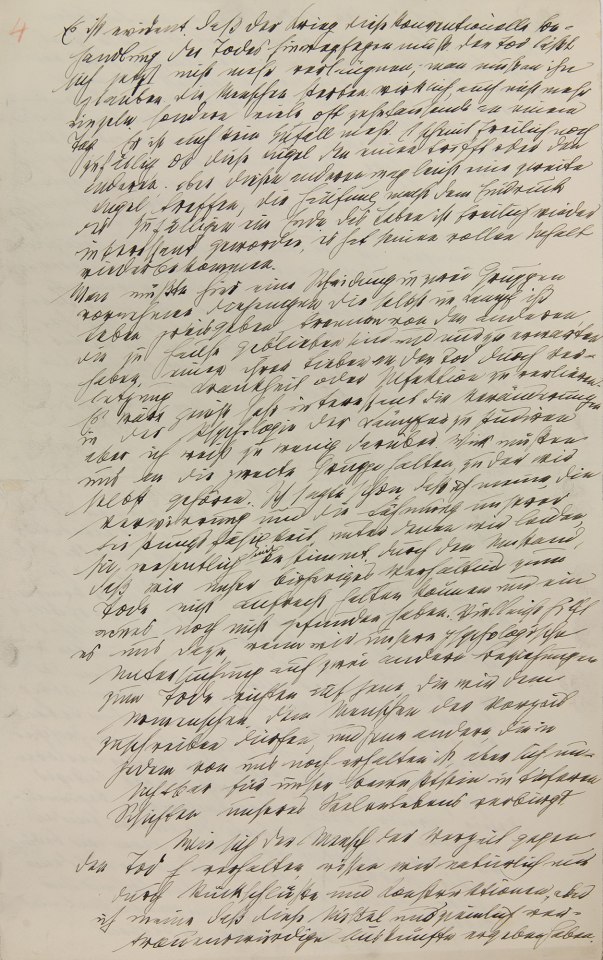 4
Es ist evident, daß der Krieg diese konventionelle Be-
handlung des Todes hinwegfegen muß. Der Tod läßt
sich jetzt nicht mehr verleugnen, man muß an ihn
glauben, die Menschen sterben wirklich, auch nicht mehr
einzeln sondern viele, oft zehntausende an einem
Tag. Es ist auch kein Zufall mehr. Es scheint freilich noch
zufällig ob diese Kugel den einen trifft oder den
anderen. aber diesen anderen mag leicht eine zweite
Kugel treffen, die Häufung macht dem Eindruck
des Zufälligen ein Ende. Das Leben ist freilich wieder
interessant geworden, es hat seinen vollen Inhalt
wiederbekommen.
Man müßte hier eine Scheidung in zwei Gruppen
vornehmen. diejenigen die selbst im Kampf ihr
Leben preisgeben, trennen von den anderen
die zu Hause geblieben sind und nur zu erwarten
haben, einen ihrer Lieben an den Tod durch Ver-
letzung Krankheit oder Infektion zu verlieren.
Es wäre gewiß sehr interessant die Veränderungen
in der Psychologie der Kämpfer zu studieren
aber ich weiß zu wenig darüber. Wir müssen
uns an die zweite Gruppe halten, zu der wir
selbst gehören. Ich sagte schon, daß ich meine die
Verwirrung und die Lähmung unserer
Leistungsfähigkeit, unter denen wir leiden,
sei wesentlich mitbestimmt durch den Umstand,
daß wir unser bisheriges Verhältnis zum
Tode nicht aufrecht halten können und ein
neues noch nicht gefunden haben. Vielleicht hilft
es uns dazu, wenn wir unsere psychologische
Untersuchung auf zwei andere Beziehungen
zum Tode richten auf jene, die wir dem
Urmenschen, dem Menschen der Vorzeit
zuschreiben dürfen, und jene andere die in
jedem von uns noch erhalten ist aber sich un-
sichtbar für unser Bewußtsein in tieferen
Schichten unseres Seelenlebens verbirgt
Wie sich der Mensch der Vorzeit gegen
den Tod verhalten, wissen wir natürlich nur
durch Rückschlüsse und Konstruktionen, aber
ich meine daß diese Mittel uns ziemlich ver-
trauenswürdige Auskünfte ergeben haben.